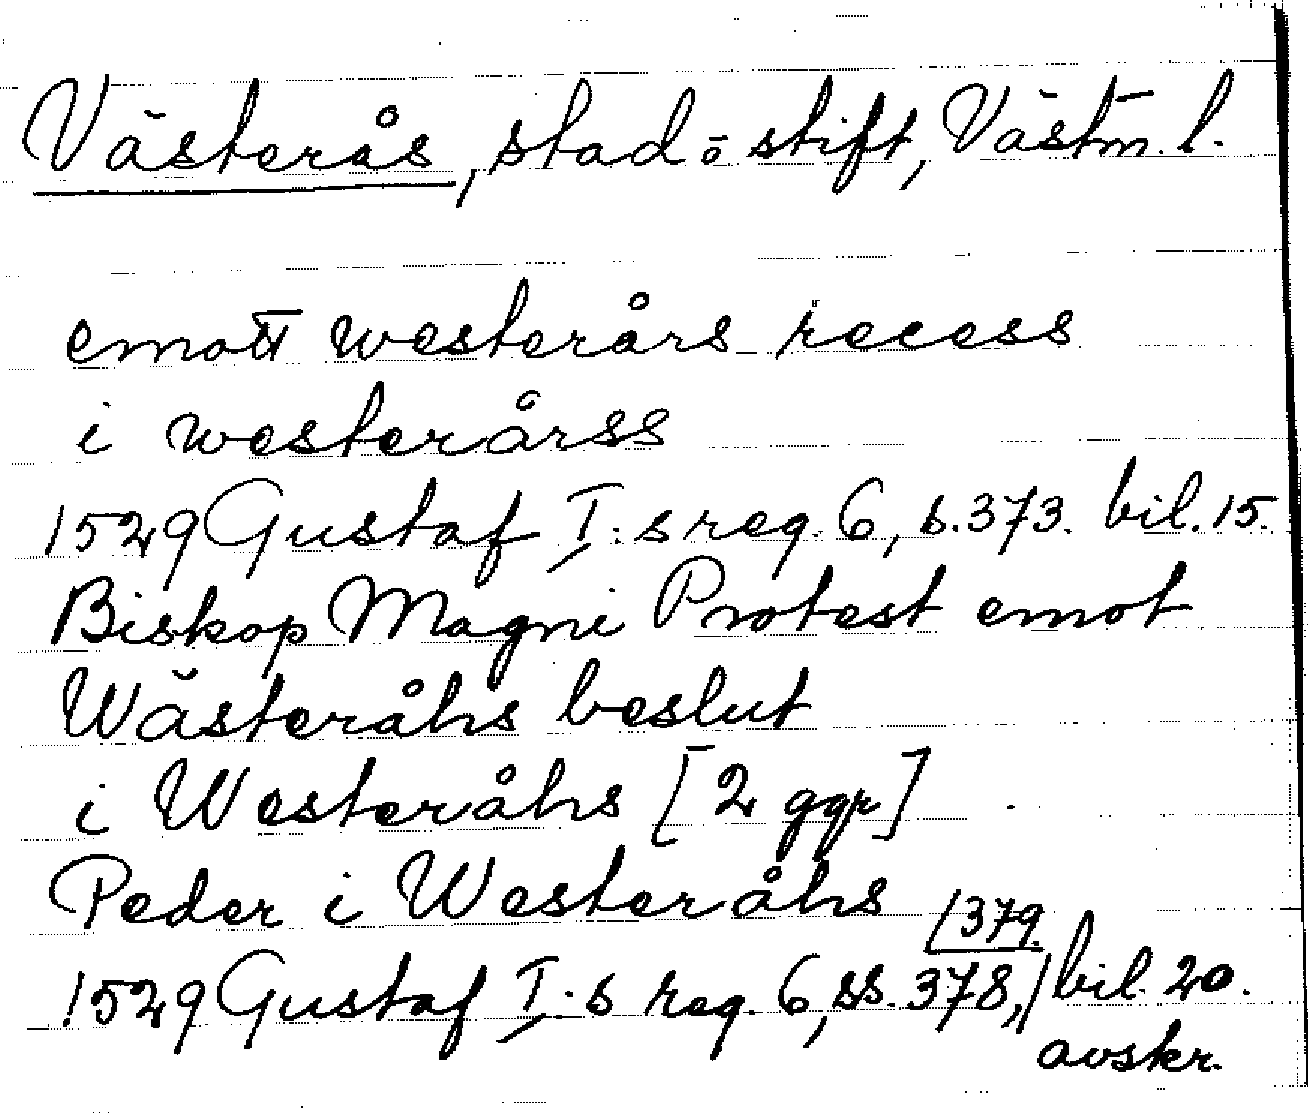 Västerås, stad o stift, Västm. l.
emott westerårs recess
i westerårss
1529 Gustaf I:s reg. 6, s. 373. bil. 15.
Biskop Magni Protest emot
Wästeråhs beslut
i Westeråhs [2 ggr]
Peder i Westeråhs
1529 Gustaf I:s reg. 6, ss. 378, 379 bil. 20.
avskr.